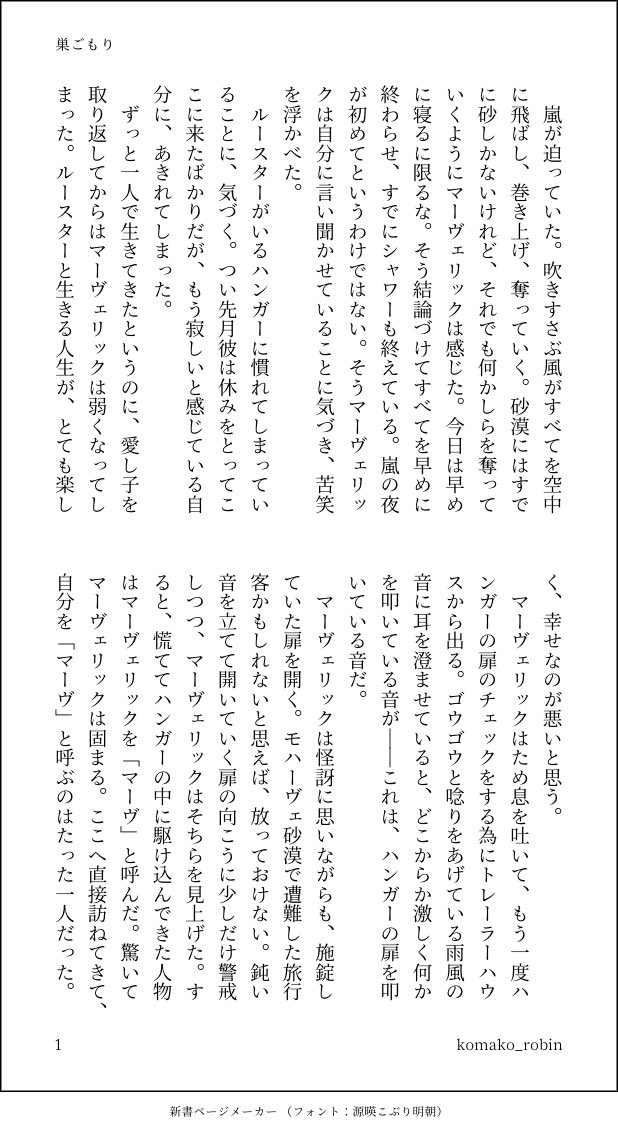 巣ごもり
　嵐が迫っていた。吹きすさぶ風がすべてを空中
に飛ばし、巻き上げ、奪っていく。砂漠にはすで
に砂しかないけれど、それでも何かしらを奪って
いくようにマーヴェリックは感じた。今日は早め
に寝るに限るな。そう結論づけてすべてを早めに
終わらせ、すでにシャワーも終えている。嵐の夜
が初めてというわけではない。そうマーヴェリッ
クは自分に言い聞かせていることに気づき、苦笑
を浮かべた。
　ルースターがいるハンガーに慣れてしまってい
ることに、気づく。つい先月彼は休みをとってこ
こに来たばかりだが、もう寂しいと感じている自
分に、あきれてしまった。
　ずっと一人で生きてきたというのに、愛し子を
取り返してからはマーヴェリックは弱くなってし
まった。ルースターと生きる人生が、とても楽し
く、幸せなのが悪いと思う。
　マーヴェリックはため息を吐いて、もう一度ハ
ンガーの扉のチェックをする為にトレーラーハウ
スから出る。ゴウゴウと唸りをあげている雨風の
音に耳を澄ませていると、どこからか激しく何か
を叩いている音が――これは、ハンガーの扉を叩
いている音だ。
　マーヴェリックは怪訝に思いながらも、施錠し
ていた扉を開く。モハーヴェ砂漠で遭難した旅行
客かもしれないと思えば、放っておけない。鈍い
音を立てて開いていく扉の向こうに少しだけ警戒
しつつ、マーヴェリックはそちらを見上げた。す
ると、慌ててハンガーの中に駆け込んできた人物
はマーヴェリックを「マーヴ」と呼んだ。驚いて
マーヴェリックは固まる。ここへ直接訪ねてきて、
自分を「マーヴ」と呼ぶのはたった一人だった。
1
komako_robin
新書ページメーカー（フォント：源暎こぶり明朝）